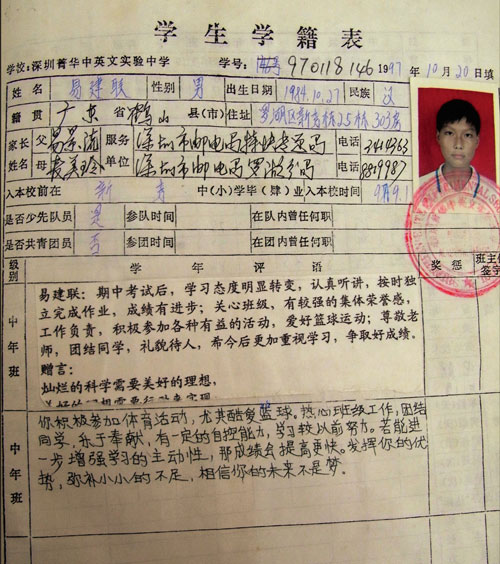 学生学籍表
学校:深圳菁华中英文实验中学 学号: 970118146 1997年10月20日填
姓名 易建联 性别 男 出生日期 1984.10.27 民族 汉
籍贯 广东省鹤山县(市) 住址 罗湖区新秀村25栋303房
家长姓名 父 易景流 服务单位 深圳市邮电局特快专递局 电话
母 麦美玲 深圳市邮电局罗湖分局 电话
入本校前在 新秀 中(小)学毕(肄)业 入本校时间 97.9.1
是否少先队员 是 参队时间 在队内曾任何职
是否共青团员 否 参团时间 在团内曾任何职
级别 学年评语 奖惩 班主任签字
中年班
易建联:期中考试后,学习态度明显转变,认真听讲,按时独
立完成作业,成绩有进步;关心班级,有较强的集体荣誉感,
工作负责,积极参加各种有益的活动,爱好篮球运动;尊敬老
师,团结同学,礼貌待人,希今后更加重视学习,争取好成绩。
赠言:
灿烂的科学需要美好的理想,
中年班
你积极参加体育活动,尤其酷爱篮球。热心班级工作,团结
同学,乐于奉献,有一定的自控能力,学习较以前努力。若能进
一步增强学习的主动性,那成绩会提高更快。发挥你的优
势,弥补小小的不足,相信你的未来不是梦。